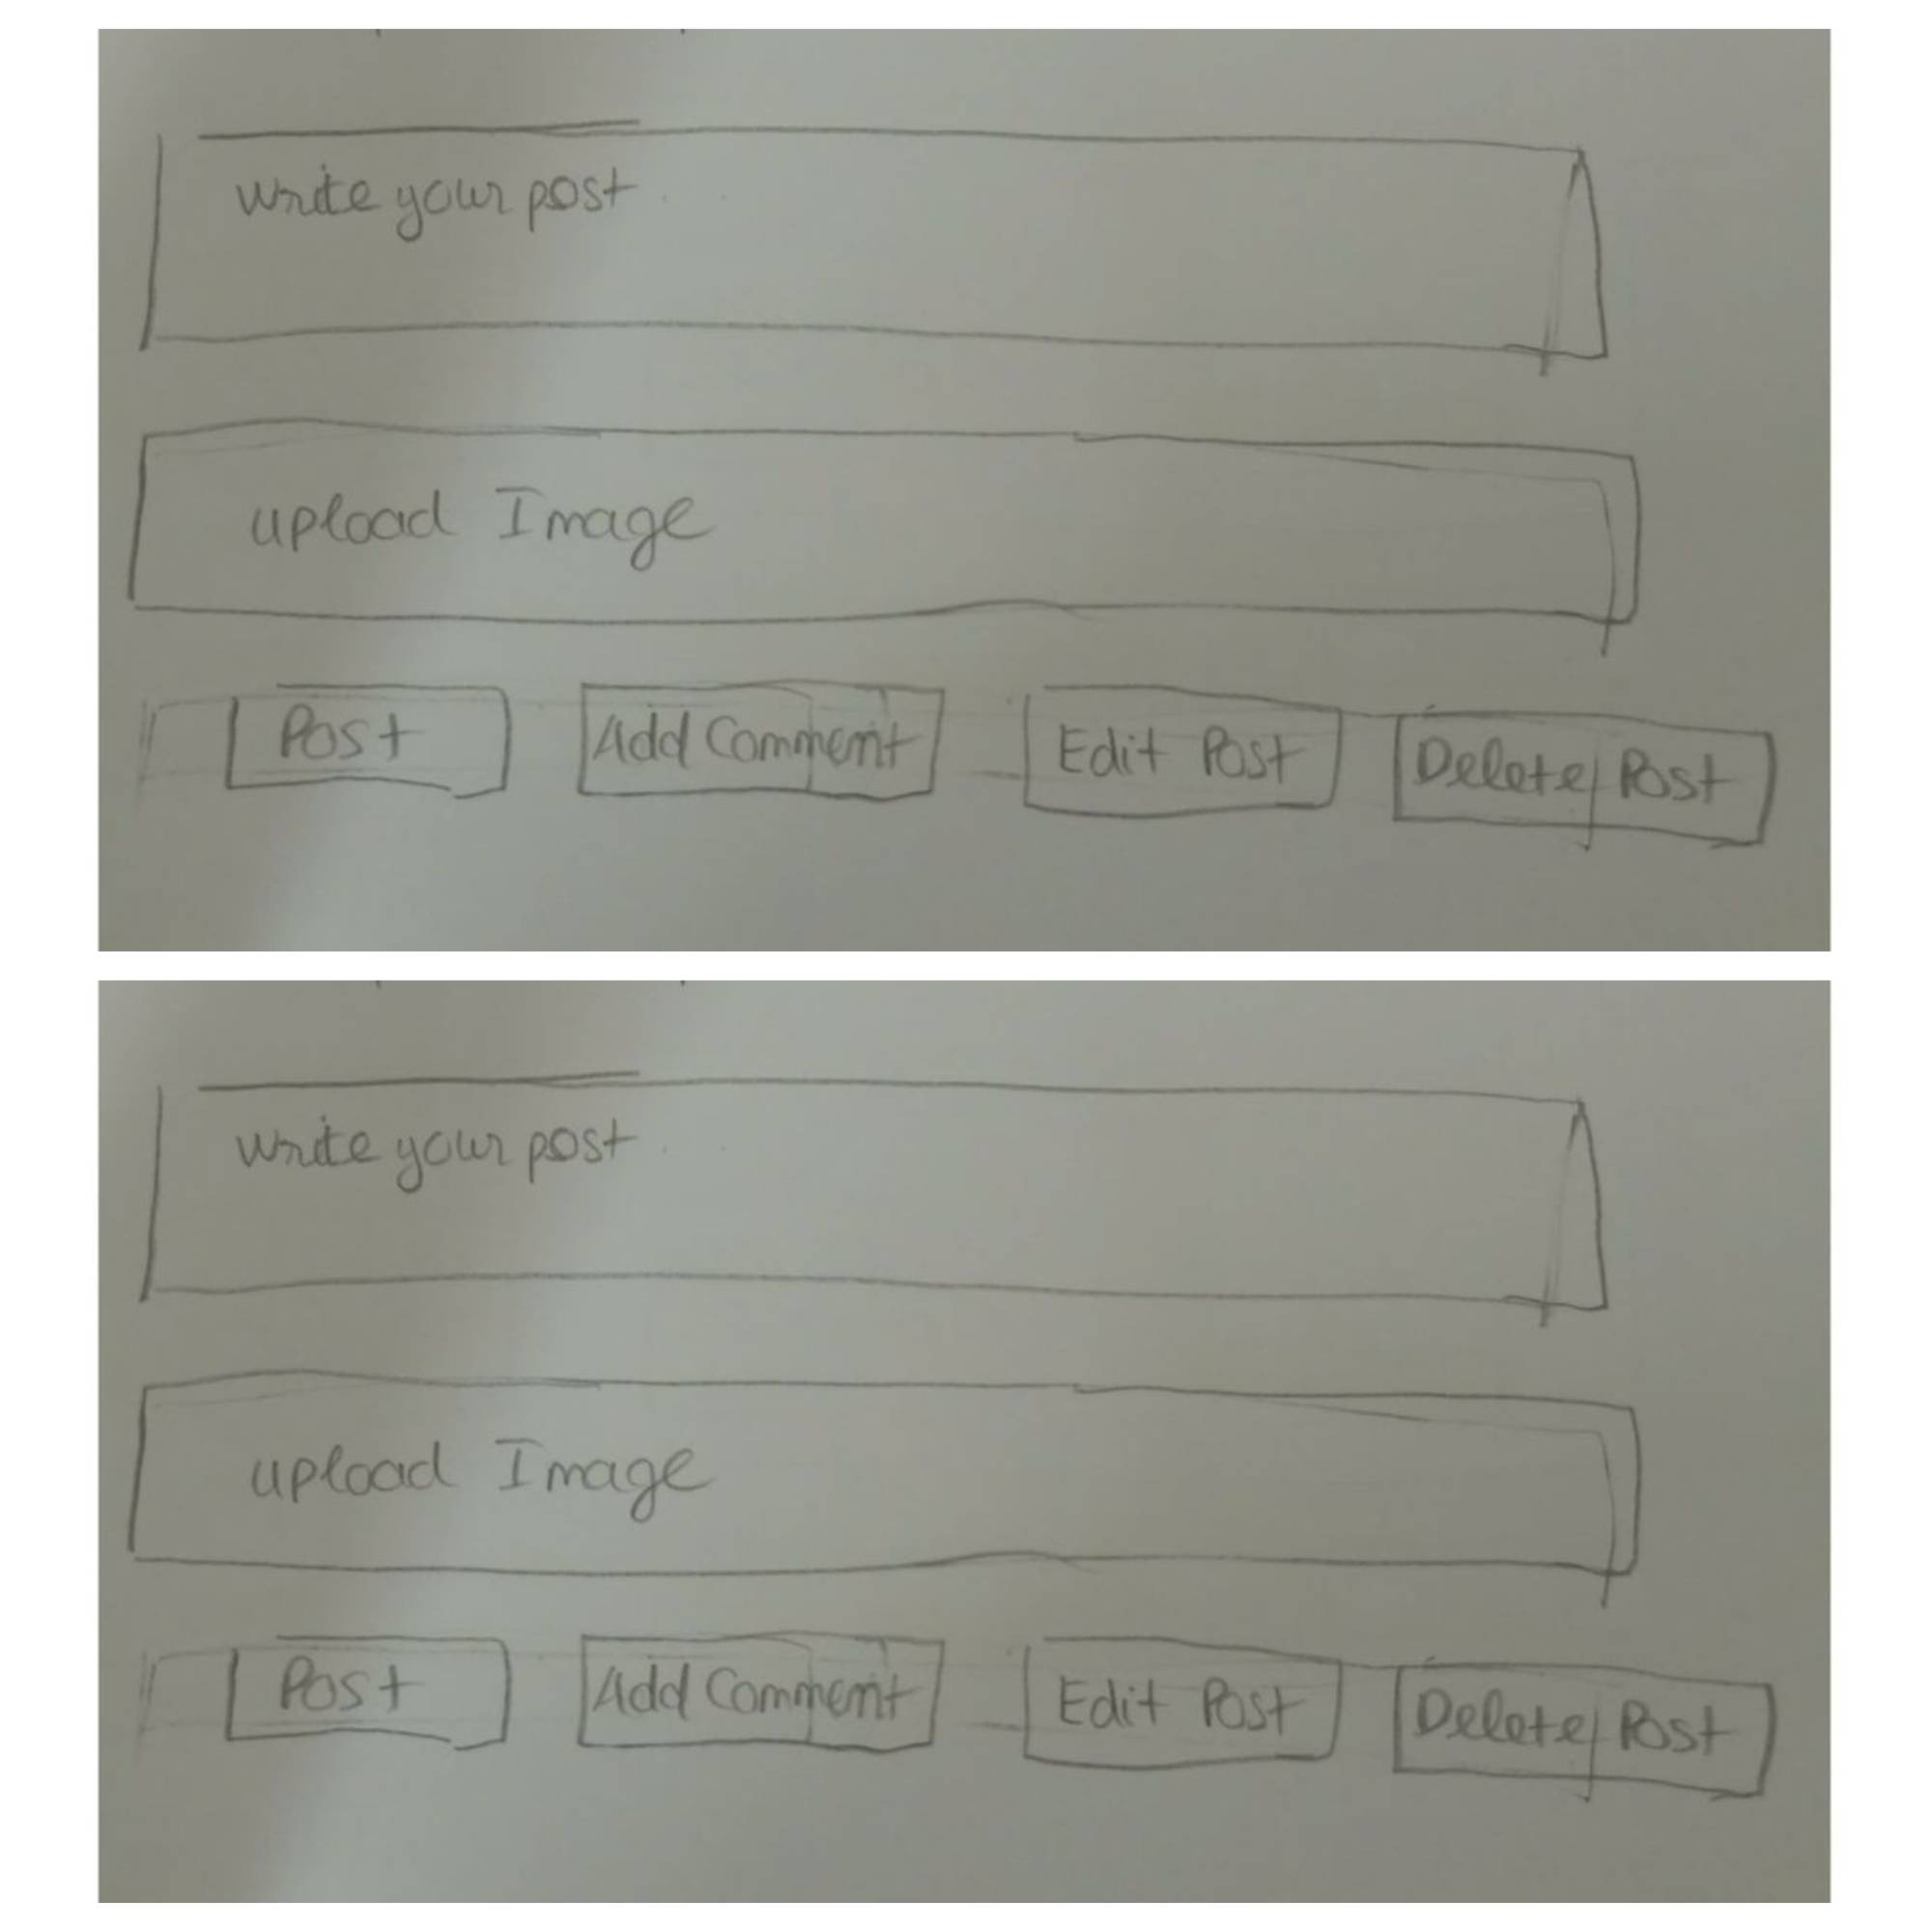 write your post
upload Image
Post Add Comment Edit Post Delete Post
write your post
upload Image
Post Add Comment Edit Post Delete Post